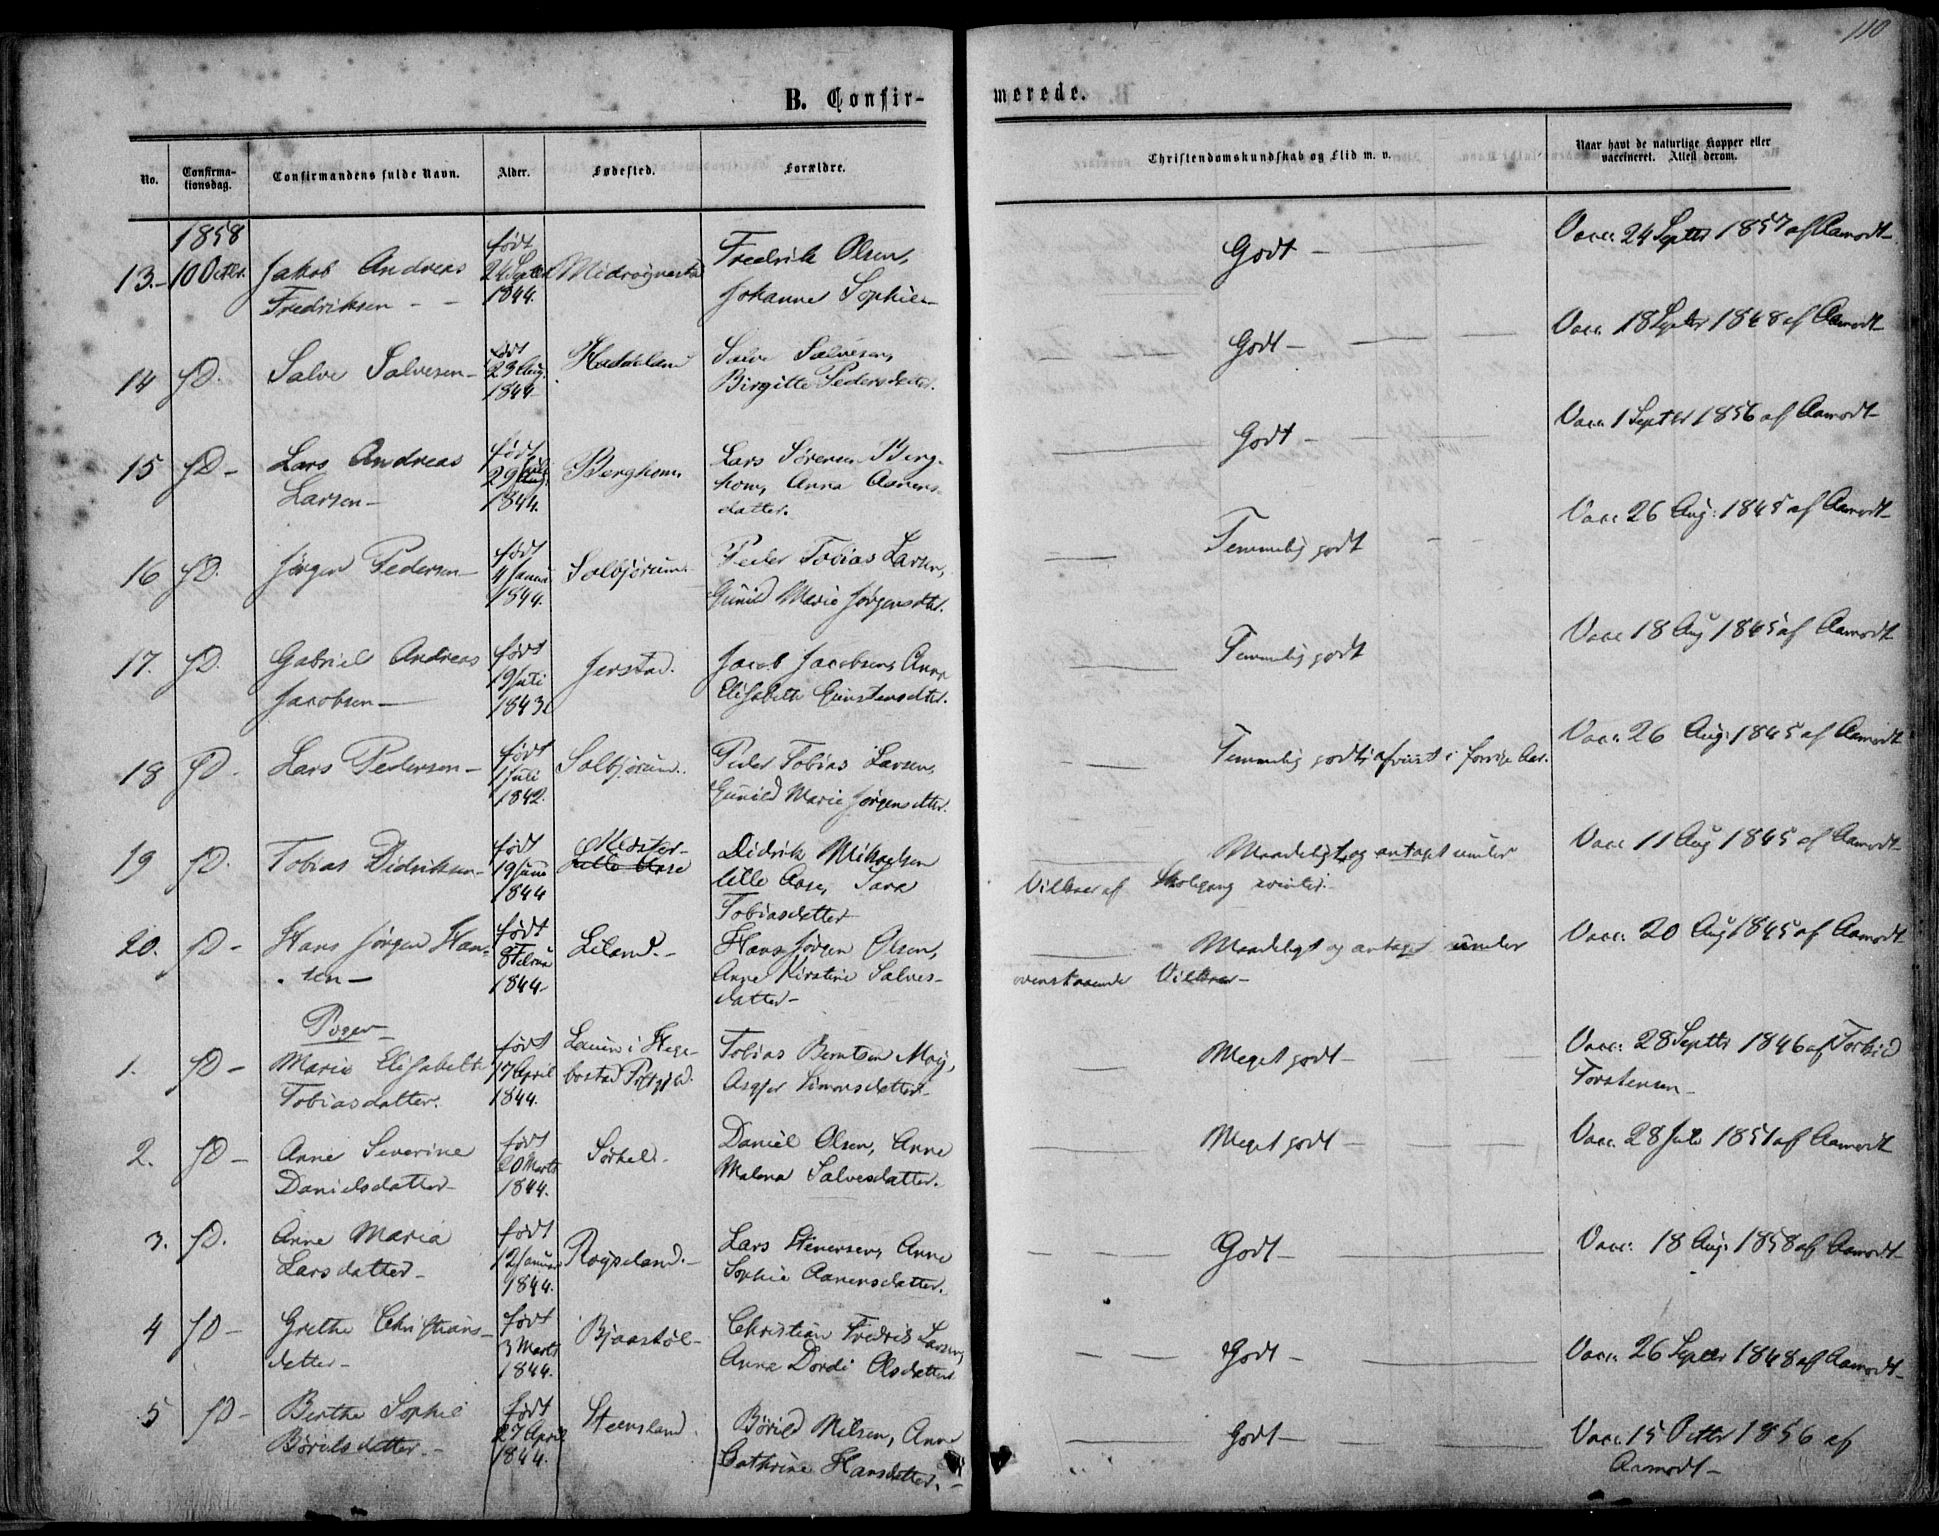 110
B. Confir-
merede.
No.
Confirma-
tionsdag.
Confirmandens fulde Navn.
Alder.
Fødested.
Forældre.
Christendomskundskab og Flid m. v.
Naar havt de naturlige Kopper eller
vaccineret. Attest derom.
1858
13.- 10 Octbr. Jakob Andreas Fredriksen - -
født 24 Septbr 1844.
Fredrik Olsen, Johanne Sophie
Godt -
Vacc. 24 Septbr 1857 af Aamodt-
14 do. Salve Salvesen-
født 23 Aug. 1844
Haddeland
Salve Salvesen, Birgitte Pedersdatter.
Godt -
Vacc. 18 Septbr 1848 af Aamodt
15 do- Lars Andreas Larsen-
født 29 1844.
Berghom.
Lars Sørensen Berg-
hom, Anna Aanens-
datter.
Godt -
Vacc. 1 Septbr 1856 af Aamodt-
16 do. Jørgen Pedersen-
født 4 Januar 1844.
Solbjørum.
Peder Tobias Larsen,
Gunild Marie Jørgensdtr.
Temmelig godt
Vacc. 26 Aug. 1845 af Aamodt-
17. do. Gabriel Andreas Jacobsen-
født 19 Juli 1843.
Jerstad.
Jacob Jacobsen, Anna
Elisabeth Gunstensdtr.
Temmelig godt
Vacc 18 Aug 1845 af Aamodt
18 do. Lars Pedersen-
født 1 Juli 1842.
Solbjørum.
Peder Tobias Larsen,
Gunild Marie Jørgensdtter.
Temmelig godt; afviist i forrige Aar.
Vacc. 26 Aug. 1845 af Aamodt
19 do. Tobias Didriksen-
født 19 1844
Lille Aase
Didrik Mikaelsen
lille Aase, Sara
Tobiasdatter
Maadeligt, og antaget under
Vilkaar af Skolegang i vinter.
Vacc 11 Aug 1845 af Aamodt-
20. do- Hans Jørgen Han-
sen-
født 8 Februar 1844-
Leland.-
Hans Jørgen Olsen,
Anne Kirstine Salves-
datter-
Maadeligt og antaget under
ovenstaaende Vilkaar-
Vacc. 20 Aug 1845 af Aamodt-
Piger
1. do- Marie Elisabeth Tobiasdatter.
født 17 April 1844.
i Hege-
bostad
Tobias Berntsen Moij,
Asgjer Simonsdatter-
Meget godt-
Vacc. 28 Septbr 1846 af Torkid
Torstensen-
2. do- Anne Severine Danielsdatter-
født 20 Marts 1844.
Sørhel.
Daniel Olsen, Anne
Malena Salvesdatter.
Meget godt-
Vacc. 28 Juli 1851 af Aamodt
3. do. Anne Maria Larsdatter-
født 12 Januar 1844.
Røyseland.-
Lars Stenersen, Anne
Sophie Aanensdatter.
Godt-
Vacc. 18 Aug. 1858 af Aamodt-
4 do- Grethe Christians-
datter-
født 3 Marts 1844.
Bjaastøl-
Christian Fredrik Larsen,
Anne Dordi Olsdatter
Godt-
Vacc. 26 Septbr 1848 af Aamodt-
5 do- Berthe Sophie Børildsdatter.-
født 27 April 1844.
Steensland.
Børild Nilsen, Anne
Cathrine Hansdatter.-
Godt-
Vacc. 15 Octbr 1856 af
Aamodt-